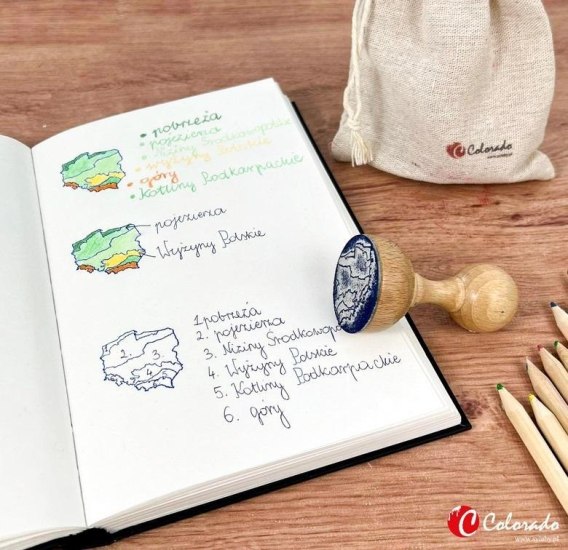 • pobrzeża
• pojezierza
• Niziny Środkowopolskie
• Wyżyny Polskie
• góry
• Kotliny Podkarpackie
pojezierza
Wyżyny Polskie
2. 3.
4. 5.
1. pobrzeża
2. pojezierza
3. Niziny Środkowopo
4. Wyżyny Polskie
5. Kotliny Podkarpackie
6. góry
C Colorado
C Colorado